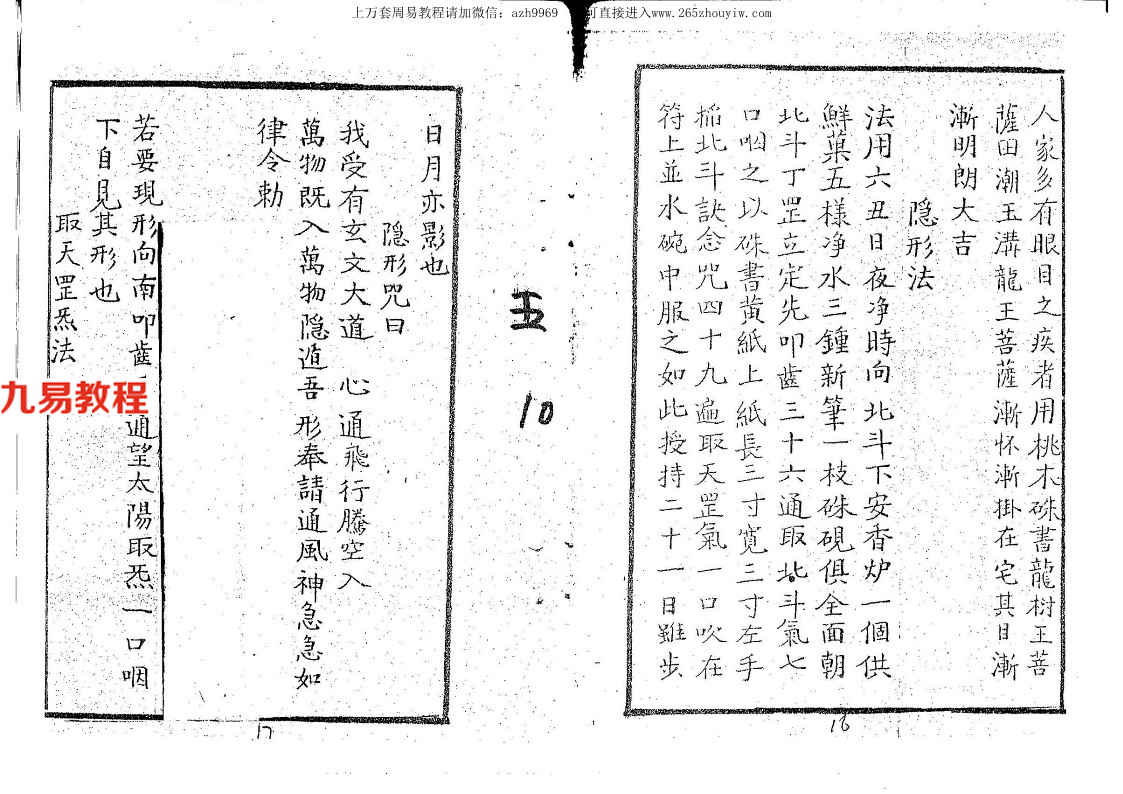 上万套周易教程请加微信：azh9969 可直接进入www.265zhouyiw.com
人家多有眼目之疾者用桃木硃書龍樹王菩
薩田潮玉溝龍王菩薩漸怀漸掛在宅其目漸
漸明朗大吉
隐形法
法用六丑日夜净時向北斗下安香炉一個供
鮮菓五樣净水三鍾新筆一枝硃硯俱全面朝
北斗丁罡立定先叩齒三十六通取北斗氣七
口咽之以硃書黄紙上紙長三寸寬三寸左手
掐北斗訣念咒四十九遍取天罡氣一口吹在
符上並水碗中服之如此授持二十一日雖步
16
五
10
日月亦影也
隐形咒曰
我受有玄文大道 心通飛行騰空入
萬物既入萬物隐遁吾形奉請通風神急急如
律令勅
若要現形向南叩齒通望太陽取炁一口咽
下自見其形也
取天罡炁法
17
九易教程